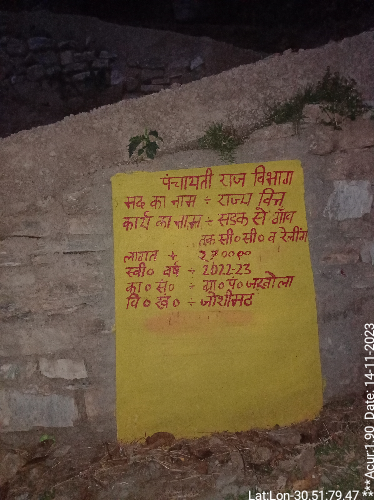 पंचायती राज विभाग
मद का नाम ÷ राज्य वित्त
कार्य का नाम ÷ सडक से गाँव
तक सी० सी० व रेलिंग
लागत ÷
स्वी० वर्ष ÷ 2022-23
का० सं० ÷ ग्रा० पं० जखोला
वि० खं० ÷ जोशीमठ
Lat:Lon-30.51:79.47
**Acur:1.90 Date: 14-11-2023